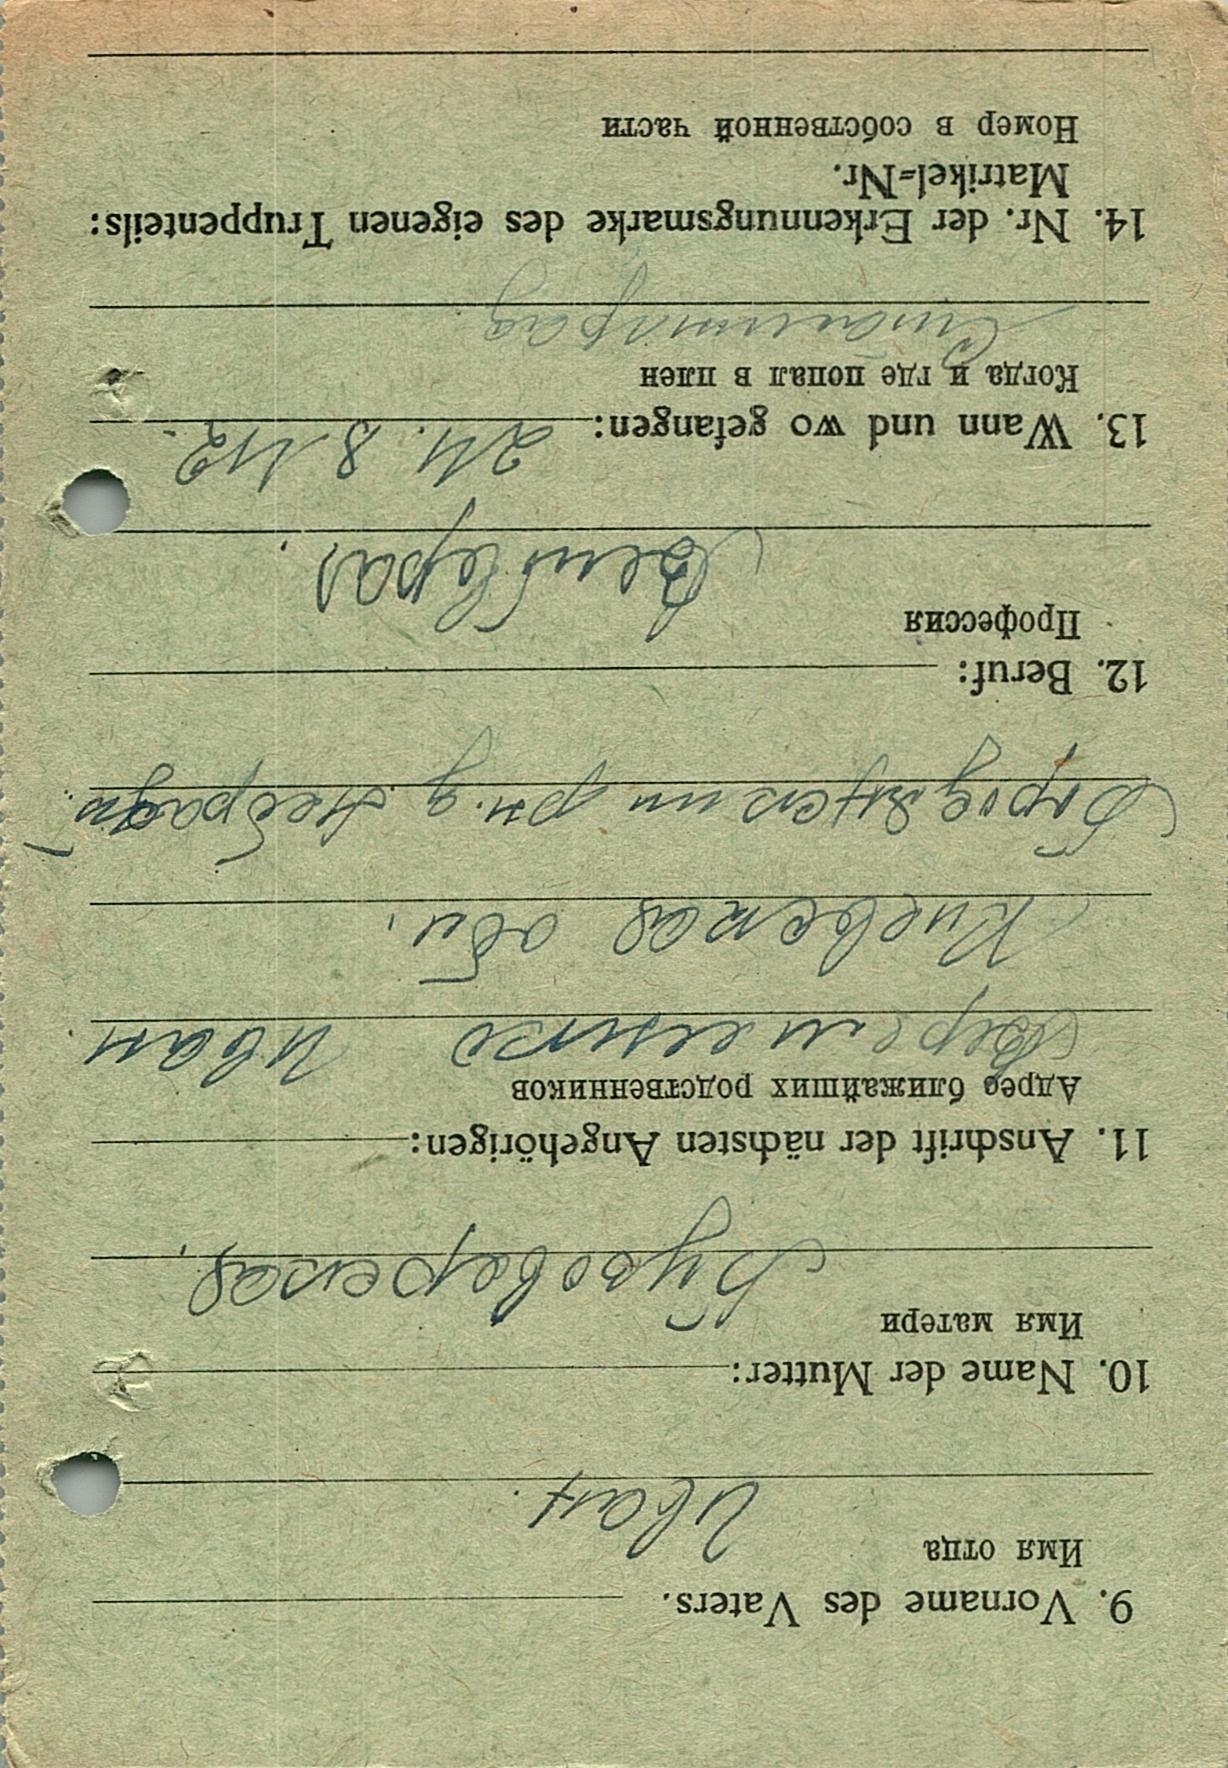 9. Vorname des Vaters.
Имя отца
Иван.
10. Name der Mutter:
Имя матери
11. Anschrift der nächsten Angehörigen:
Адрес ближайших родственников
Иван
Киевская обл.
Бородянский рн. д.
12. Beruf:
Профессия
13. Wann und wo gefangen: 24. 8. 42.
Когда и где попал в плен
Сталинград
14. Nr. der Erkennungsmarke des eigenen Truppenteils:
Matrikel=Nr.
Номер в собственной части